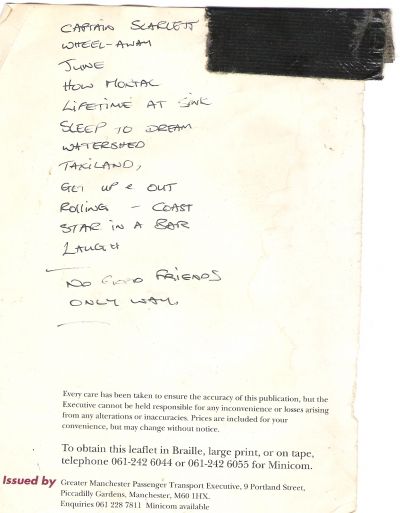 CAPTAIN SCARLETT
WHEEL-AWAY
JUNE
HOW MONTAL
LIFETIME AT SINK
SLEEP TO DREAM
WATERSHED
TAXILAND,
GET UP & OUT
ROLLING - COAST
STAR IN A BAR
LAUGH
NO GOOD FRIENDS
ONLY WAY.
Every care has been taken to ensure the accuracy of this publication, but the
Executive cannot be held responsible for any inconvenience or losses arising
from any alterations or inaccuracies. Prices are included for your
convenience, but may change without notice.
To obtain this leaflet in Braille, large print, or on tape,
telephone 061-242 6044 or 061-242 6055 for Minicom.
Issued by Greater Manchester Passenger Transport Executive, 9 Portland Street,
Piccadilly Gardens, Manchester, M60 1HX.
Enquiries 061 228 7811 Minicom available